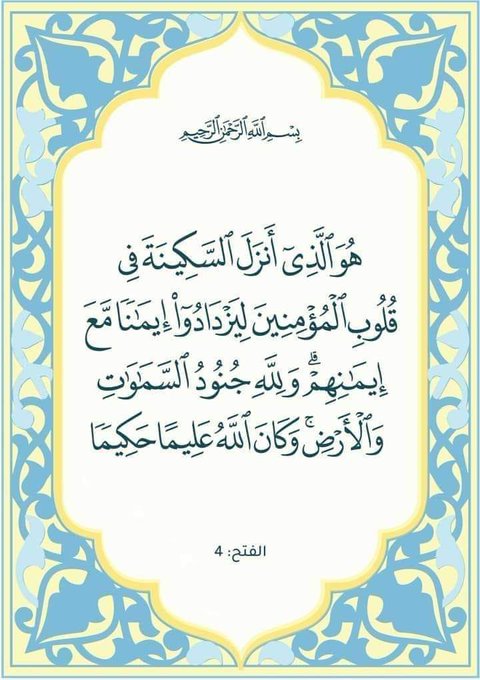 بِسْمِ ٱللَّهِ ٱلرَّحْمَٰنِ ٱلرَّحِيمِ
هُوَ ٱلَّذِىٓ أَنزَلَ ٱلسَّكِينَةَ فِى
قُلُوبِ ٱلْمُؤْمِنِينَ لِيَزْدَادُوٓا۟ إِيمَٰنًا مَّعَ
إِيمَٰنِهِمْ ۗ وَلِلَّهِ جُنُودُ ٱلسَّمَٰوَٰتِ
وَٱلْأَرْضِ ۚ وَكَانَ ٱللَّهُ عَلِيمًا حَكِيمًا
الفتح: 4